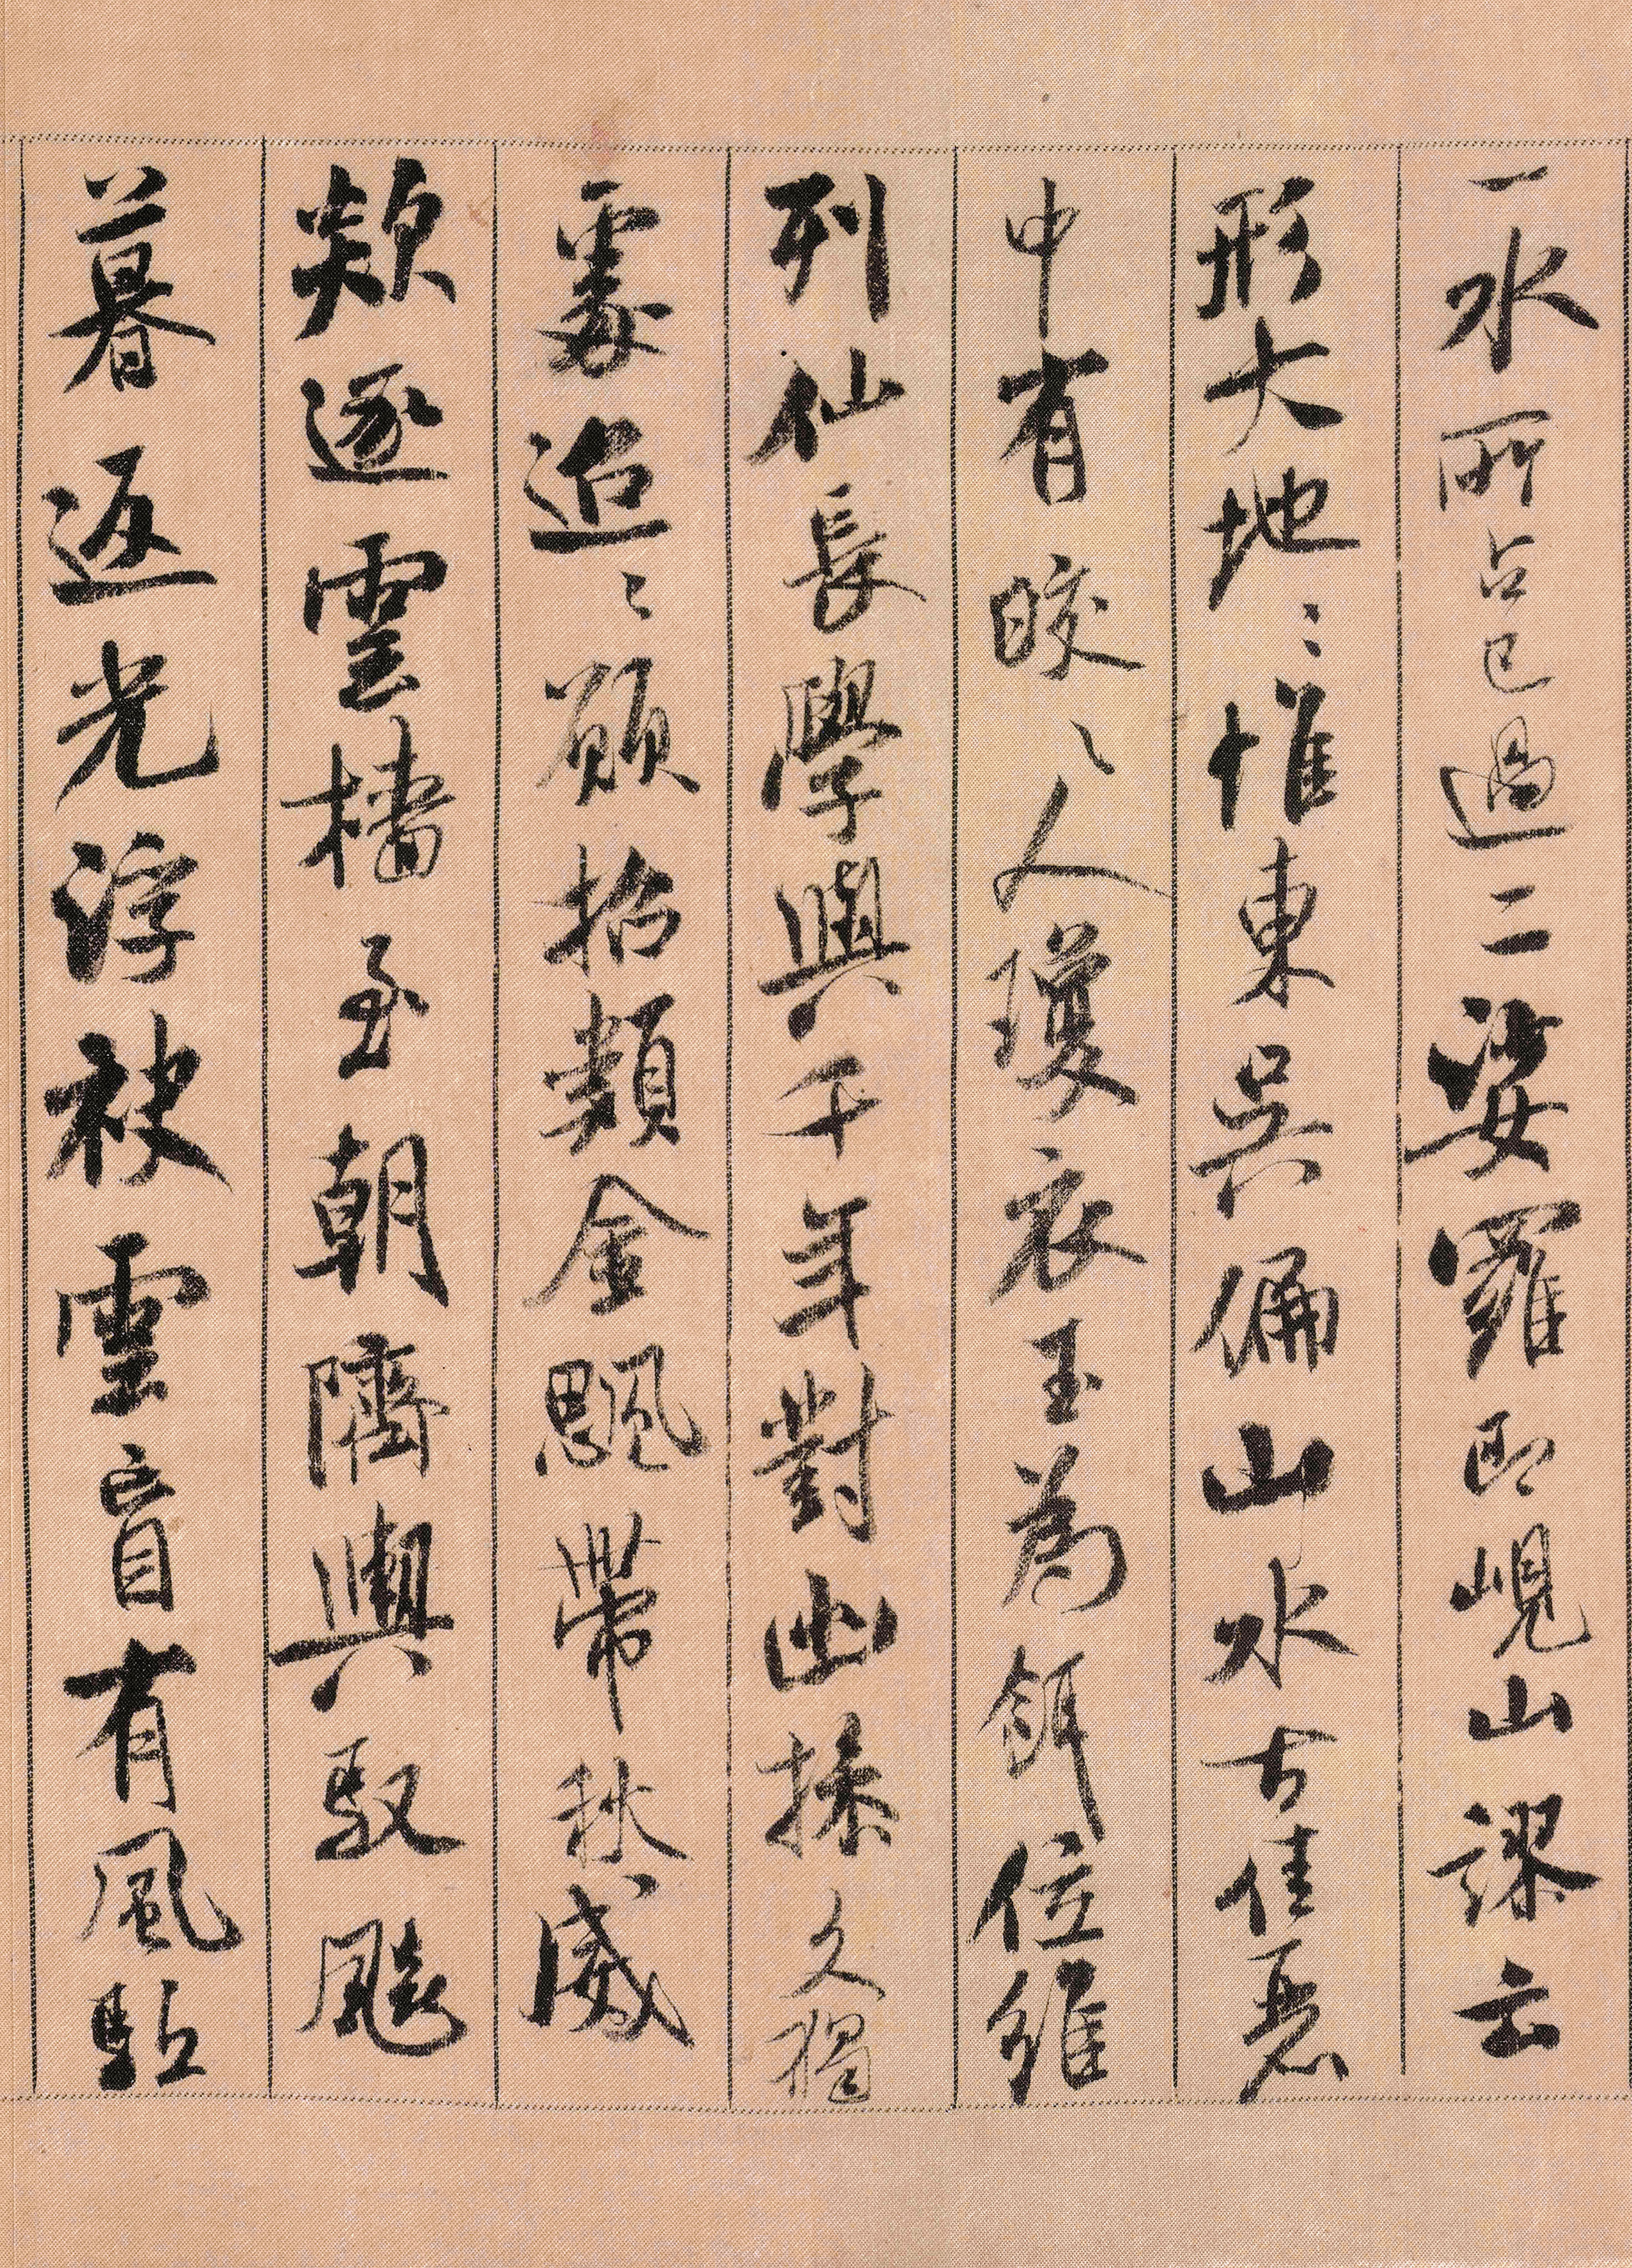 一水所占已過二娑羅即峴山謬云
形大地〻惟東吳偏山水古佳麗
中有皎〻人瓊衣玉為餌位維
列仙長學與千年對幽操久獨
處迢〻願招類金颸帶秋威
欻逐雲檣至朝隮輿馭飈
暮返光浮袂雲盲有風驂